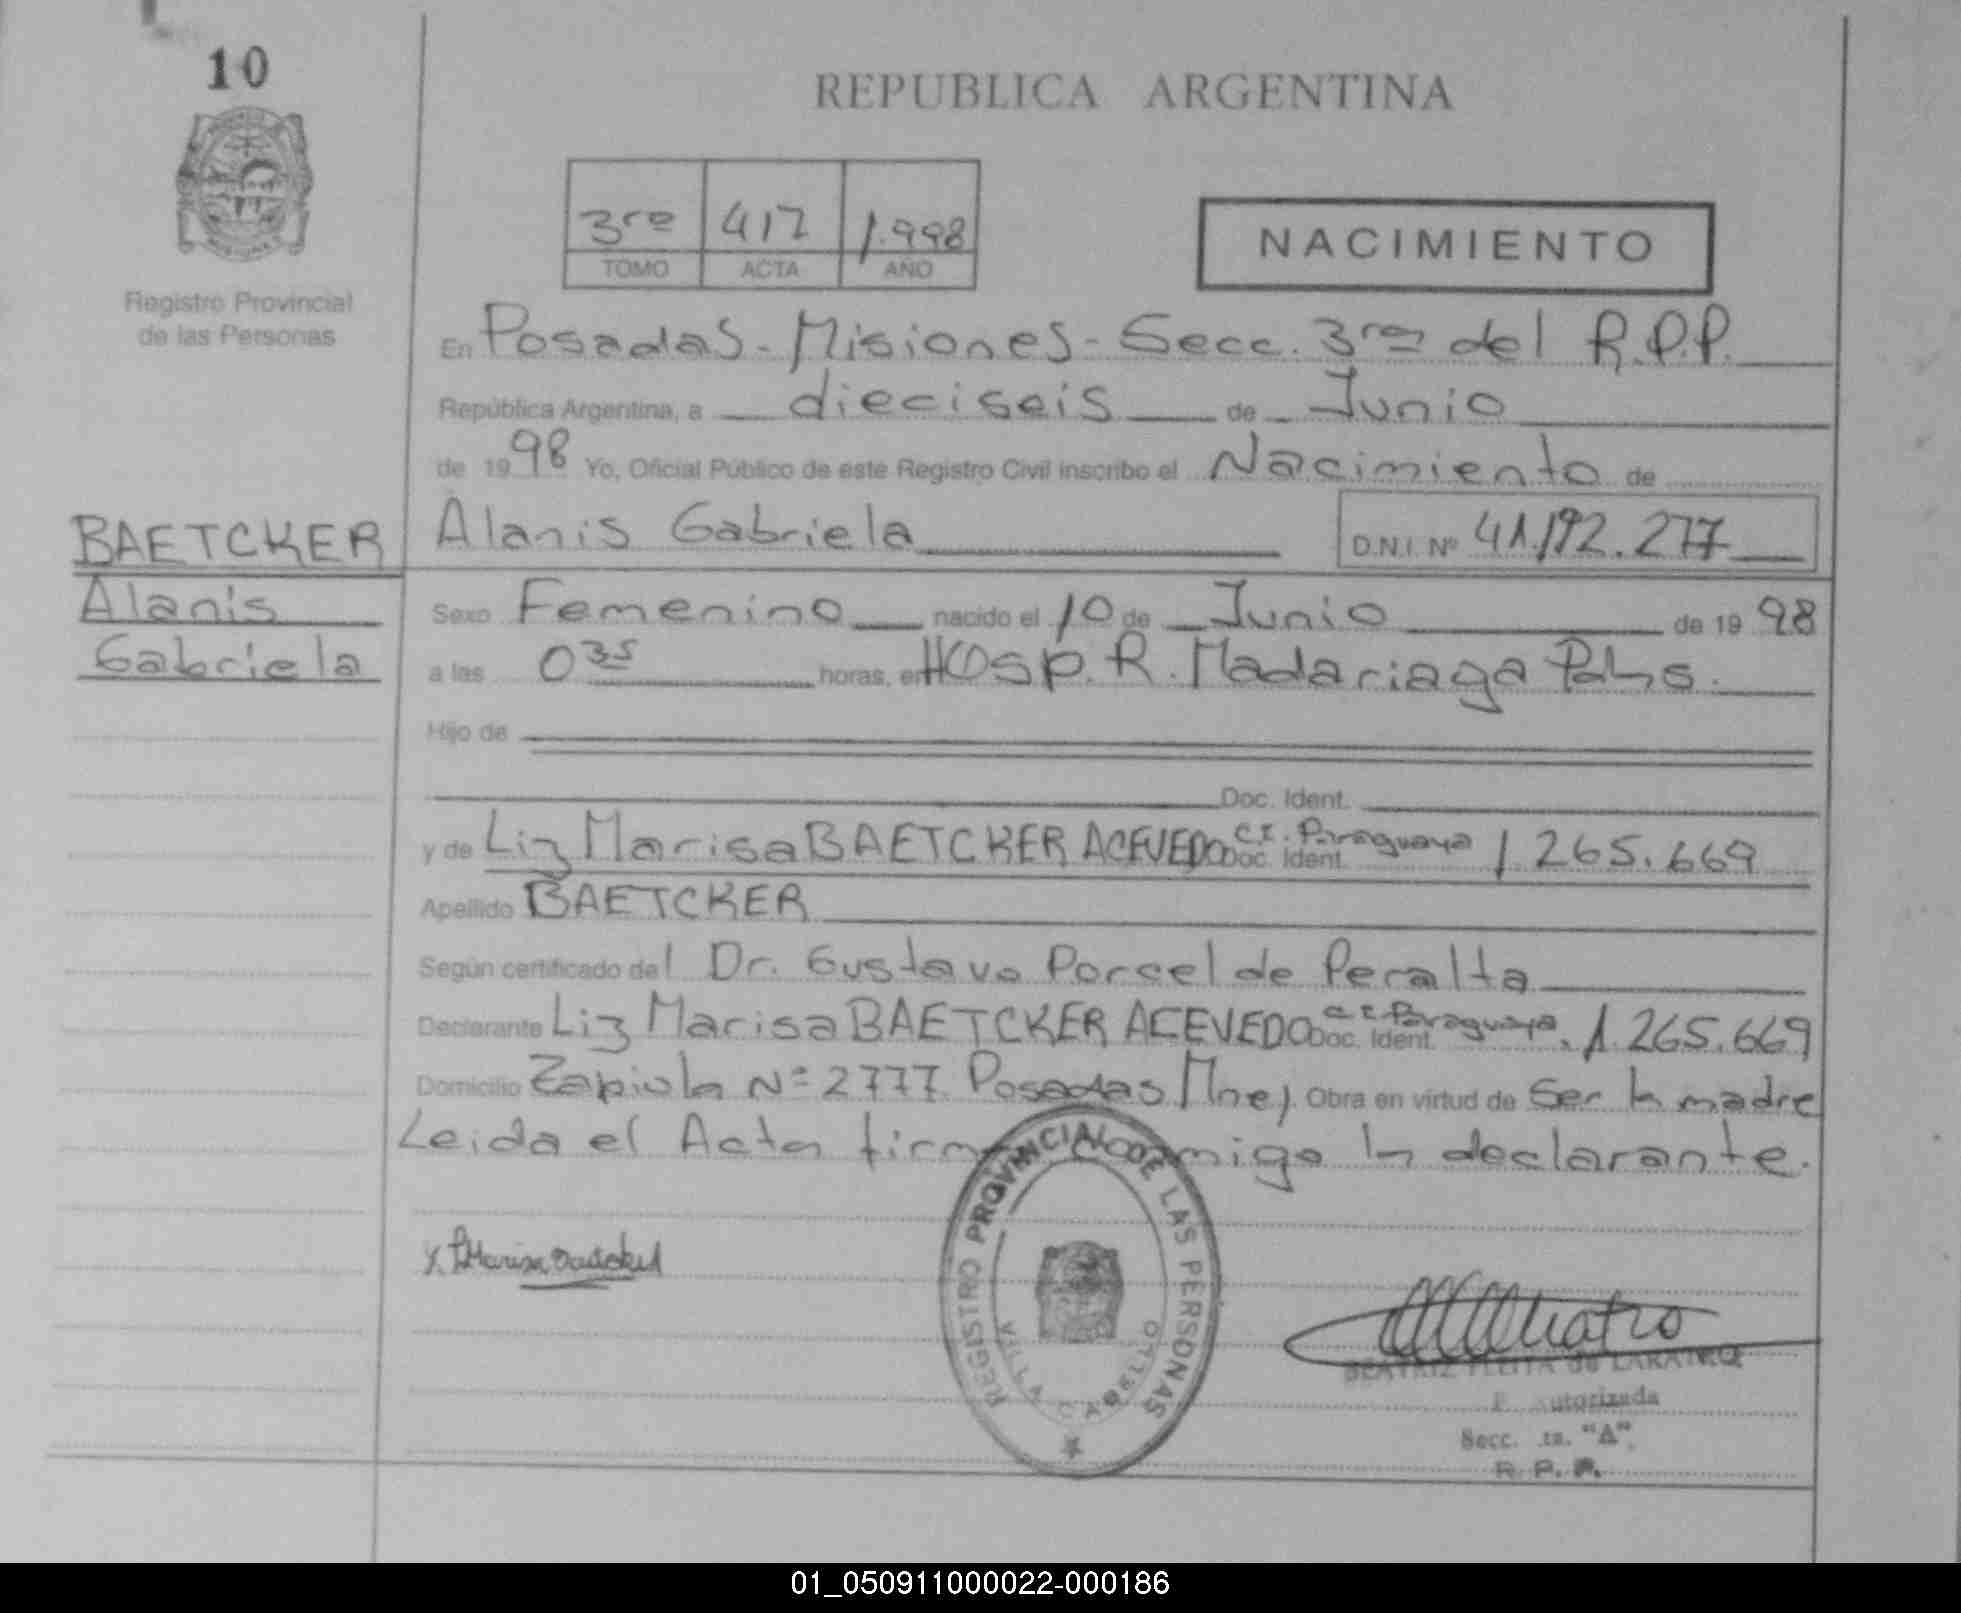 10
REPUBLICA ARGENTINA
3ra 417 1.998
TOMO ACTA AÑO
NACIMIENTO
Registro Provincial
de las Personas
En Posadas - Misiones - Secc. 3ra del R.P.P.
República Argentina, a dieciseis de Junio
de 1998 Yo, Oficial Público de este Registro Civil inscribo el Nacimiento de
BAETCKER
Alanis
Gabriela
Alanis Gabriela D.N.I. Nº 41.192.277
Sexo Femenino nacido el 10 de Junio de 1998
a las 0 35 horas, en Hosp. R. Madariaga Pdas.
Hijo de
Doc. Ident.
y de Liz Marisa BAETCKER ACEVEDO Doc. Ident. C.I. Paraguaya 1.265.669
Apellido BAETCKER
Según certificado del Dr. Gustavo Porcel de Peralta
Declarante Liz Marisa BAETCKER ACEVEDO Doc. Ident. C.I. Paraguaya. 1.265.669
Domicilio Zapiola Nº 2777 Posadas Mnes. Obra en virtud de Ser la madre
Leida el Acta firma conmigo la declarante.
REGISTRO PROVINCIAL DE LAS PERSONAS
VILLA CABELLO
BEATRIZ de LARATRO
Autorizada
Secc. "A"
R. P. P.
01_050911000022-000186